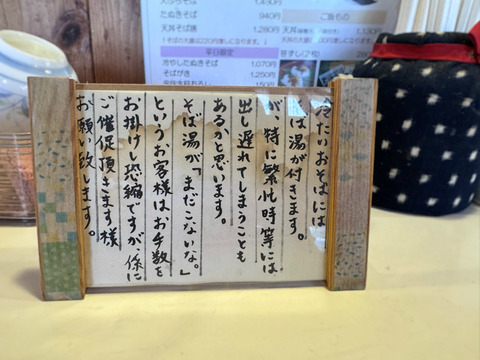 冷たいおそばには
そば湯が付きます。
が、特に繁忙時等には
出し遅れてしまうことも
あるかと思います。
そば湯が「まだこないな。」
というお客様は、お手数を
お掛けし恐縮ですが、係に
ご催促頂きます様
お願い致します。
たぬきそば 940円
天丼そば膳 1,280円
平日限定
冷やしたぬきそば 1,070円
そばがき 1,250円
ご飯もの
天丼
1,130円